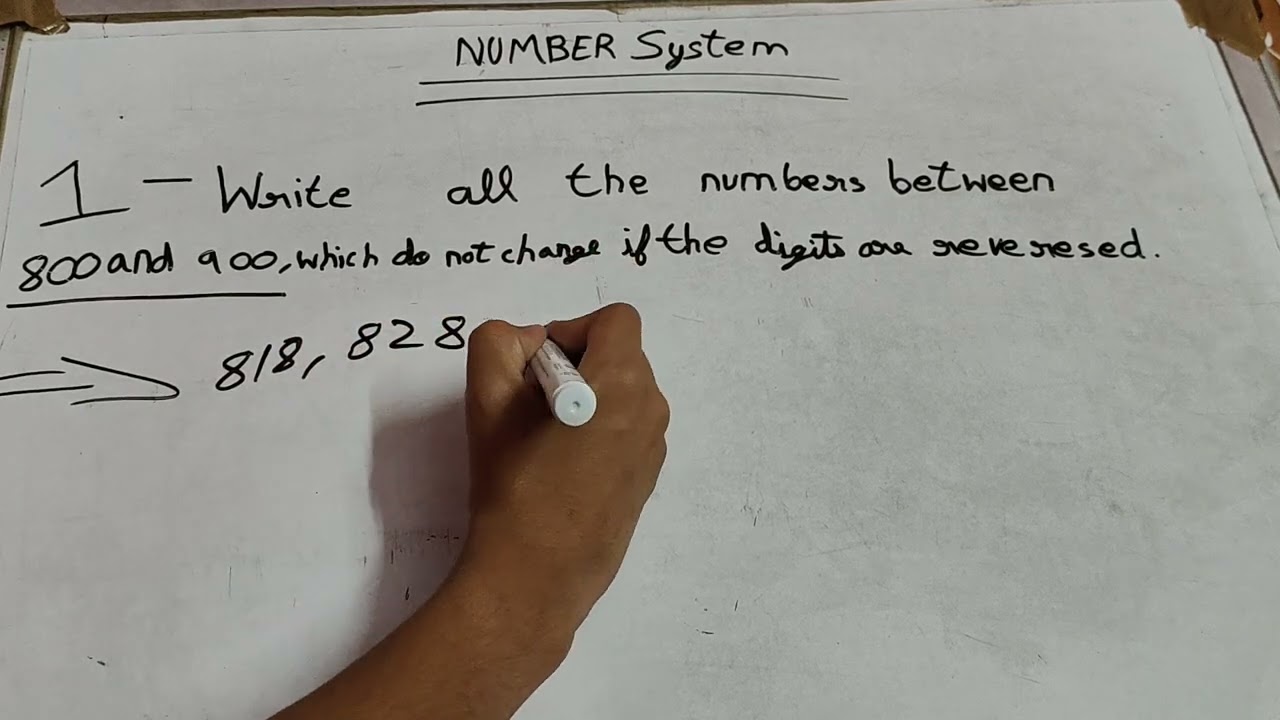 NUMBER System
1 - Write all the numbers between
800 and 900, which do not change if the digits are reveresed.
⇒ 818, 828